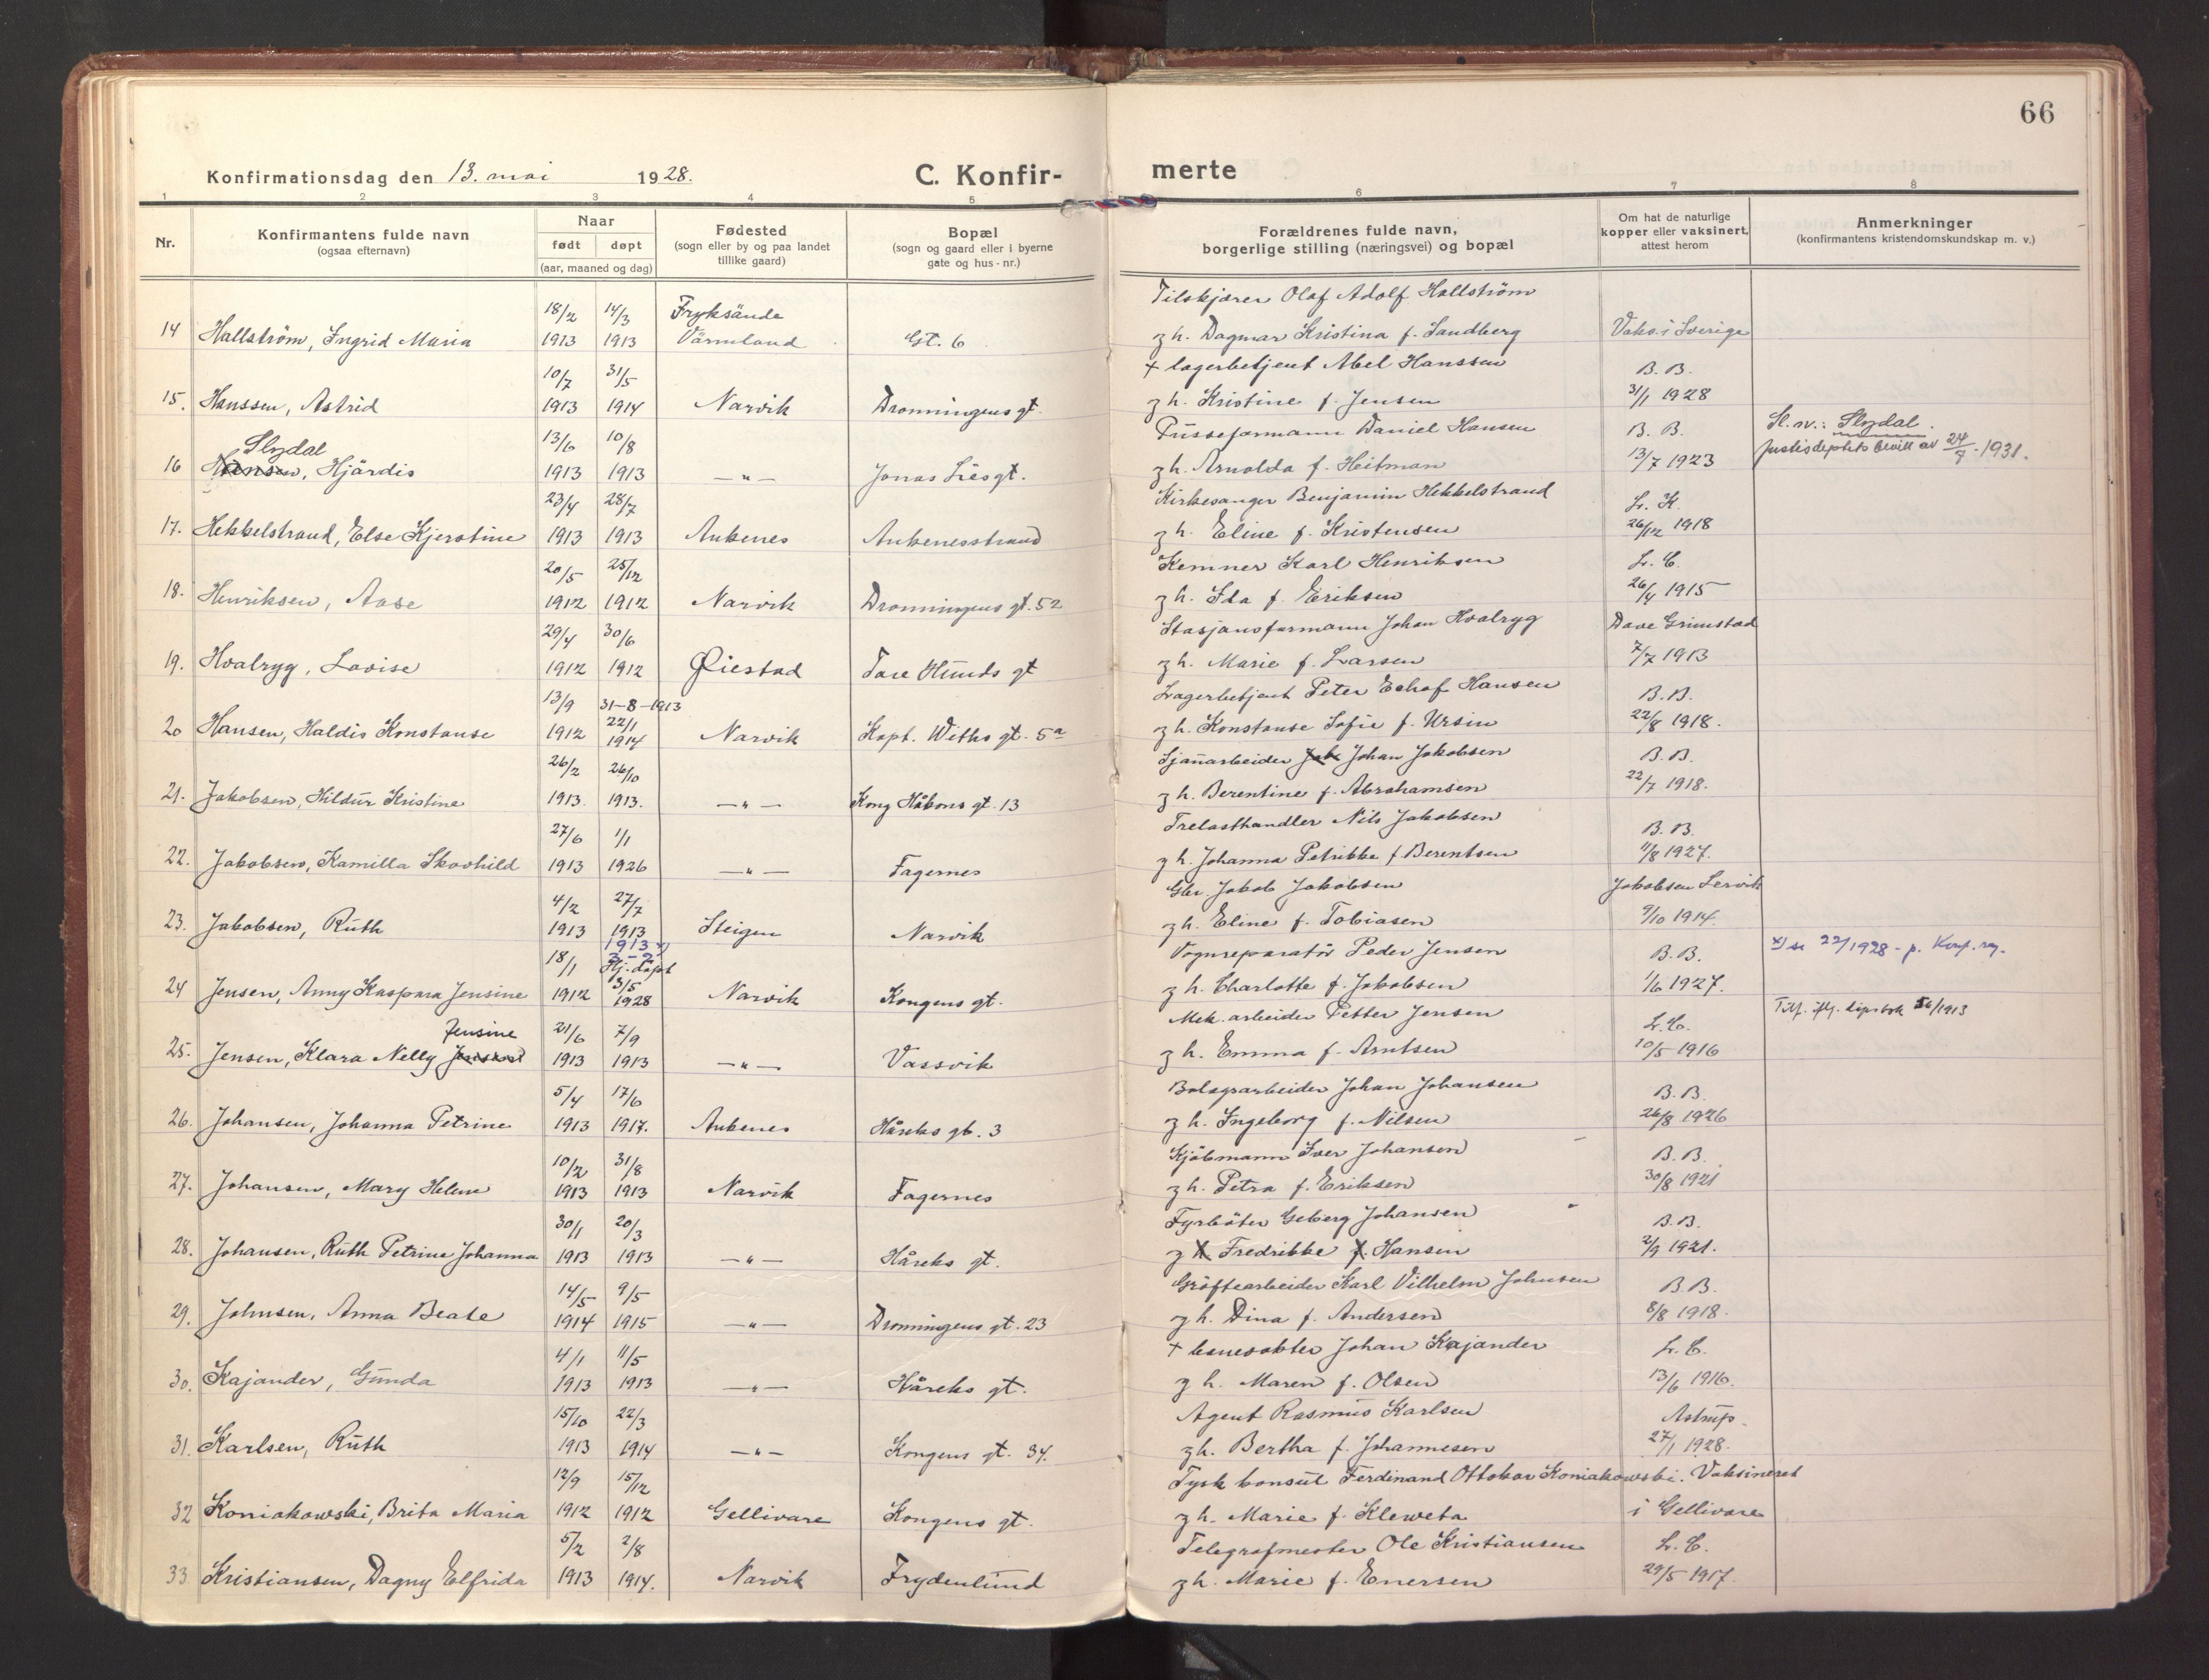 66
Konfirmationsdag den 13. mai 1928.
C. Konfir-
merte
1 2 3 4 5 6 7 8
Nr.
Konfirmantens fulde navn
(ogsaa efternavn)
Naar
født døpt
(aar, maaned og dag)
Fødested
(sogn eller by og paa landet
tillike gaard)
Bopæl
(sogn og gaard eller i byerne
gate og hus-nr.)
Forældrenes fulde navn,
borgerlige stilling (næringsvei) og bopæl
Om hat de naturlige
kopper eller vaksinert,
attest herom
Anmerkninger
(konfirmantens kristendomskundskap m. v.)
18/2 14/3 Fryksände Tilskjærer Olaf Adolf Hallström
14 Hallström, Ingrid Maria 1913 1913 Värmland Gt. 6 g h. Dagmar Kristina f. Sandberg Vaks. i Sverige
10/7 31/5 + lagerbetjent Abel Hanssen B. B.
15. Hanssen, Astrid 1913 1914 Narvik Dronningens gt. g h. Kristine f. Jensen 31/1 1928
Slydal 13/6 10/8 Pusseformann Daniel Hansen B. B. Sl.nv.: Slydal.
16 Hansen, Hjärdis 1913 1913 — " — Jonas Liesgt. g h. Arnolda f. Heitman 13/7 1923 Justisdeptets bevill av 24/7 - 1931.
23/4 28/7 Kirkesanger Benjamin Hekkelstrand L. K.
17. Hekkelstrand, Else Kjerstine 1913 1913 Ankenes Ankenesstrand g h. Eline f. Kristensen 26/12 1918
20/5 25/12 Kemner Karl Henriksen L. C.
18. Henriksen, Aase 1912 1912 Narvik Dronningens gt. 52 g h. Ida f. Eriksen 26/4 1915
29/4 30/6 Stasjonsformann Johan Hvalryg Dave Grimstad
19. Hvalryg, Lovise 1912 1912 Øiestad Tore Hunds gt g h. Marie f. Larsen 7/7 1913
13/9 31-8-1913 Lagerbetjent Peter Hansen B. B.
20 Hansen, Haldis Konstanse 1912 22/1 1914 Narvik Kapt. Weths gt. 5a g h. Konstanse Sofie f. Ursin 22/8 1918.
26/2 26/10 Sjauarbeider Jak Johan Jakobsen B. B.
21. Jakobsen, Hildur Kristine 1913. 1913. — " — Kong Håkons gt. 13 g h. Berentine f. Abrahamsen 22/7 1918.
27/6 1/1 Trelasthandler Nils Jakobsen B. B.
22. Jakobsen, Kamilla Skovhild 1913 1926 — " — Fagernes g h. Johanna Petrikke f. Berentsen 11/8 1927.
4/2 27/7 Gbr. Jakob Jakobsen Jakobsen Lervik
23. Jakobsen, Ruth 1913 1913 Steigen Narvik g h. Eline f. Tobiasen 9/10 1914.
18/1 1913 x) 3-2 Hj. døpt Vognreparatör Peder Jensen B. B. x) se 22/1928 - p. Konf. reg.
24 Jensen, Anny Kaspara Jensine 1912 3/5 1928 Narvik Kongens gt. g h. Charlotte f. Jakobsen 1/6 1927.
Jensine 21/6 7/9 Mek. arbeider Petter Jensen L. C. Tilf. ifg. dåpsbok 56/1913
25. Jensen, Klara Nelly 1913 1913 — " — Vassvik g h. Emma f. Arntsen 10/5 1916
5/4 17/6 Bolagsarbeider Johan Johansen B. B.
26. Johansen, Johanna Petrine 1913 1917. Ankenes Håreks gt. 3 g h. Ingeborg f. Nilsen 26/8 1926
10/2 31/8 Kjöbmann Iver Johansen B. B.
27. Johansen, Mary Helene 1913 1913 Narvik Fagernes g h. Petra f. Eriksen 30/8 1921
30/1 20/3 Fyrböter Geberg Johansen B. B.
28. Johansen, Ruth Petrine Johanna 1913 1913 — " — Håreks gt. g h. Fredrikke f. Hansen 2/9 1921.
14/5 9/5 Gröftearbeider Karl Vilhelm Johnsen B. B.
29. Johnsen, Anna Beate 1914 1915 — " — Dronningens gt. 23 g h. Dina f. Andersen 8/8 1918.
4/1 11/5 + Johan Kajander L. C.
30. Kajander, Gunda 1913 1913 — " — Håreks gt. g h. Maren f. Olsen 13/6 1916.
15/10 22/3 Agent Rasmus Karlsen Astrup.
31. Karlsen, Ruth 1913 1914 — " — Kongens gt. 34. g h. Bertha f. Johannesen 27/1 1928.
12/9 15/12 Tysk konsul Ferdinand Ottokar Koniakowski. Vaksineret
32 Koniakowski, Brita Maria 1912 1912 Gellivare Kongens gt. g h. Marie f. Kleweta i Gellivare
5/2 2/8 Telegrafmester Ole Kristiansen L. C.
33. Kristiansen, Dagny Elfrida 1913 1914. Narvik Frydenlund g h. Marie f. Enersen 29/5 1917.